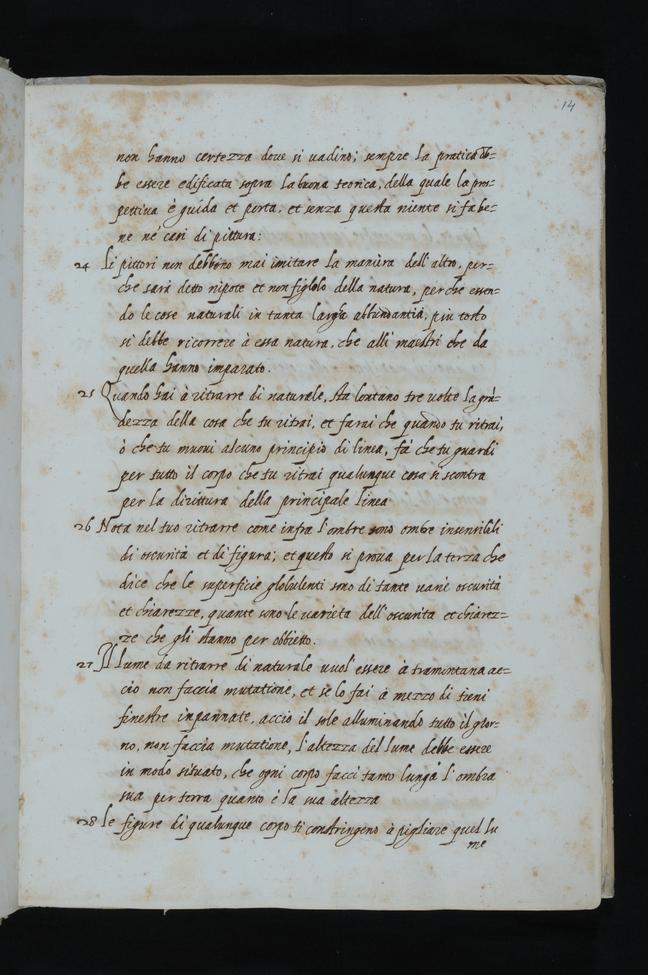 14
non hanno certezza dove si vadino; sempre la pratica deb=
be essere edificata sopra la buona teorica, della quale la pros=
pettiva è guida et porta, et senza questa niente si fa be=
ne ne' casi di pittura:
24 Li pittori non debbono mai imitare la maniera dell'altro, per=
che sarà detto nipote et non figlolo della natura, perche essen=
do le cose naturali in tanta larga abbundantia, piu tosto
si debbe ricorrere à essa natura, che alli maestri che da
quella hanno imparato.
25 Quando hai à ritrarre di naturale, sta lontano tre volte la grā=
dezza della cosa che tu ritrai, et farai che quando tu ritrai,
ò che tu muovi alcuno principio di linea, fa che tu guardi
per tutto il corpo che tu ritrai qualunque cosa si scontra
per la dirittura della principale linea
26 Nota nel tuo ritrarre come infra l'ombre sono ombre insensibili
di oscurità et di figura; et questo si prova per la terza che
dice che le superficie globulenti sono di tante varie oscurità
et chiarezze, quante sono le varieta dell'oscurita et chiarez=
ze che gli stanno per obbietto.
27 Il lume da ritrarre di naturale vuol'essere à tramontana ac=
cio non faccia mutatione, et se lo fai à mezzo dì tieni
finestre inpannate, accio il sole alluminando tutto il gior=
no, non faccia mutatione, l'altezza del lume debbe essere
in modo situato, che ogni corpo facci tanto lunga l'ombra
sua per terra quanto è la sua altezza
28 Le figure di qualunque corpo ti constringono à pigliare quel lu
me